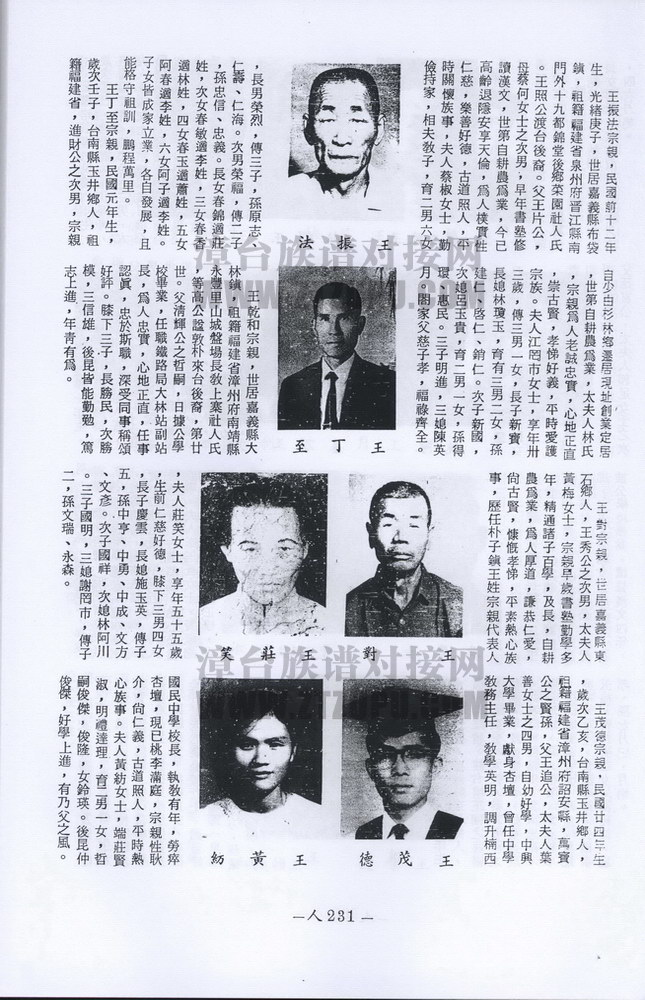 王振法宗親，民國前十二年
生，光緒庚子，世居嘉義縣布袋
鎮，祖籍福建省泉州府晋江縣南
門外十九都錦堂後鄉菜園社人氏
。王照公渡台後裔。父王片公，
母蔡何女士之次男，早年書塾修
讀漢文，世第自耕農爲業，今已
高齡退隱安享天倫，爲人樸實性
仁慈，樂善好德，古道照人，平
時關懷族事，夫人蔡椒女士，勤
儉持家，相夫敎子，育二男六女
，長男榮烈，傳三子，孫原志、
仁壽、仁海。次男榮福，傳二子
，孫忠信、忠義。長女春錦適莊
姓，次女春敏適李姓，三女春香
適林姓，四女春玉適蕭姓，五女
阿春適李姓，六女阿子適李姓。
子女皆成家立業，各自發展，且
能格守祖訓，鵬程萬里。
王丁至宗親，民國元年生，
歲次壬子，台南縣玉井鄉人，祖
籍福建省，進財公之次男，宗親
王振法
自少由杉林鄉遷居現址創業定居
，世第自耕農爲業，太夫人林氏
，宗親爲人老誠忠實，心地正直
，崇古賢，孝悌好義，平時愛護
宗族。夫人江罔市女士，享年卅
三歲，傳三男一女，長子新寶，
長媳林瓊玉，育有三男二女，孫
建仁、啓仁、銷仁。次子新國，
次媳呂玉貴，育二男一女，孫得
環、惠民。三子明進，三媳陳英
月，闔家父慈子孝，福祿齊全。
王丁至
王乾和宗親，世居嘉義縣大
林鎮，祖籍福建省漳州府南靖縣
永豐里山城盤場長敎上寨社人氏
，等高公諡敦朴來台後裔，第廿
世。父清輝公之哲嗣，日據公學
校畢業，任職鐵路局大林站副站
長，爲人忠實，心地正直，任事
認眞，忠於斯職，深受同事稱頌
好評。膝下三子，長勝民，次勝
模，三信雄，後昆皆能勤勉，篤
志上進，年靑有爲。
王對宗親，世居嘉義縣東
石鄉人，王秀公之次男，太夫人
黃梅女士，宗親早歲書塾勤學多
年，精通諸子百學，及長，自耕
農爲業，爲人厚道，謙恭仁愛，
尙古賢，慷慨孝悌，平素熱心族
事，歷任朴子鎮王姓宗親代表人
王對
王莊笑
，夫人莊笑女士，享年五十五歲
，生前仁慈好德，膝下三男四女
，長子慶雲，長媳施玉英，傳子
五，孫中亨、中勇、中成、文方
、文彥。次子國祥，次媳林阿川
。三子國明，三媳謝罔市，傳子
二，孫文瑞、永森。
王茂德宗親，民國廿四年生
，歲次乙亥，台南縣玉井鄉人，
祖籍福建省漳州府詔安縣，萬寶
公之賢孫，父王追公，太夫人葉
善女士之四男，自幼好學，中興
大學畢業，獻身杏壇，曾任中學
敎務主任，敎學英明，調升楠西
王茂德
王黃紡
國民中學校長，執敎有年，勞瘁
杏壇，現已桃李滿庭，宗親性耿
介，尙仁義，古道照人，平時熱
心族事。夫人黃紡女士，端莊賢
淑，明禮達理，育二男一女，哲
嗣俊傑，俊隆，女鈴瑛。後昆仲
俊傑，好學上進，有乃父之風。
—人231—
漳台族谱对接网
WWW.ZTZUPU.COM
漳台族谱对接网
WWW.ZTZUPU.COM